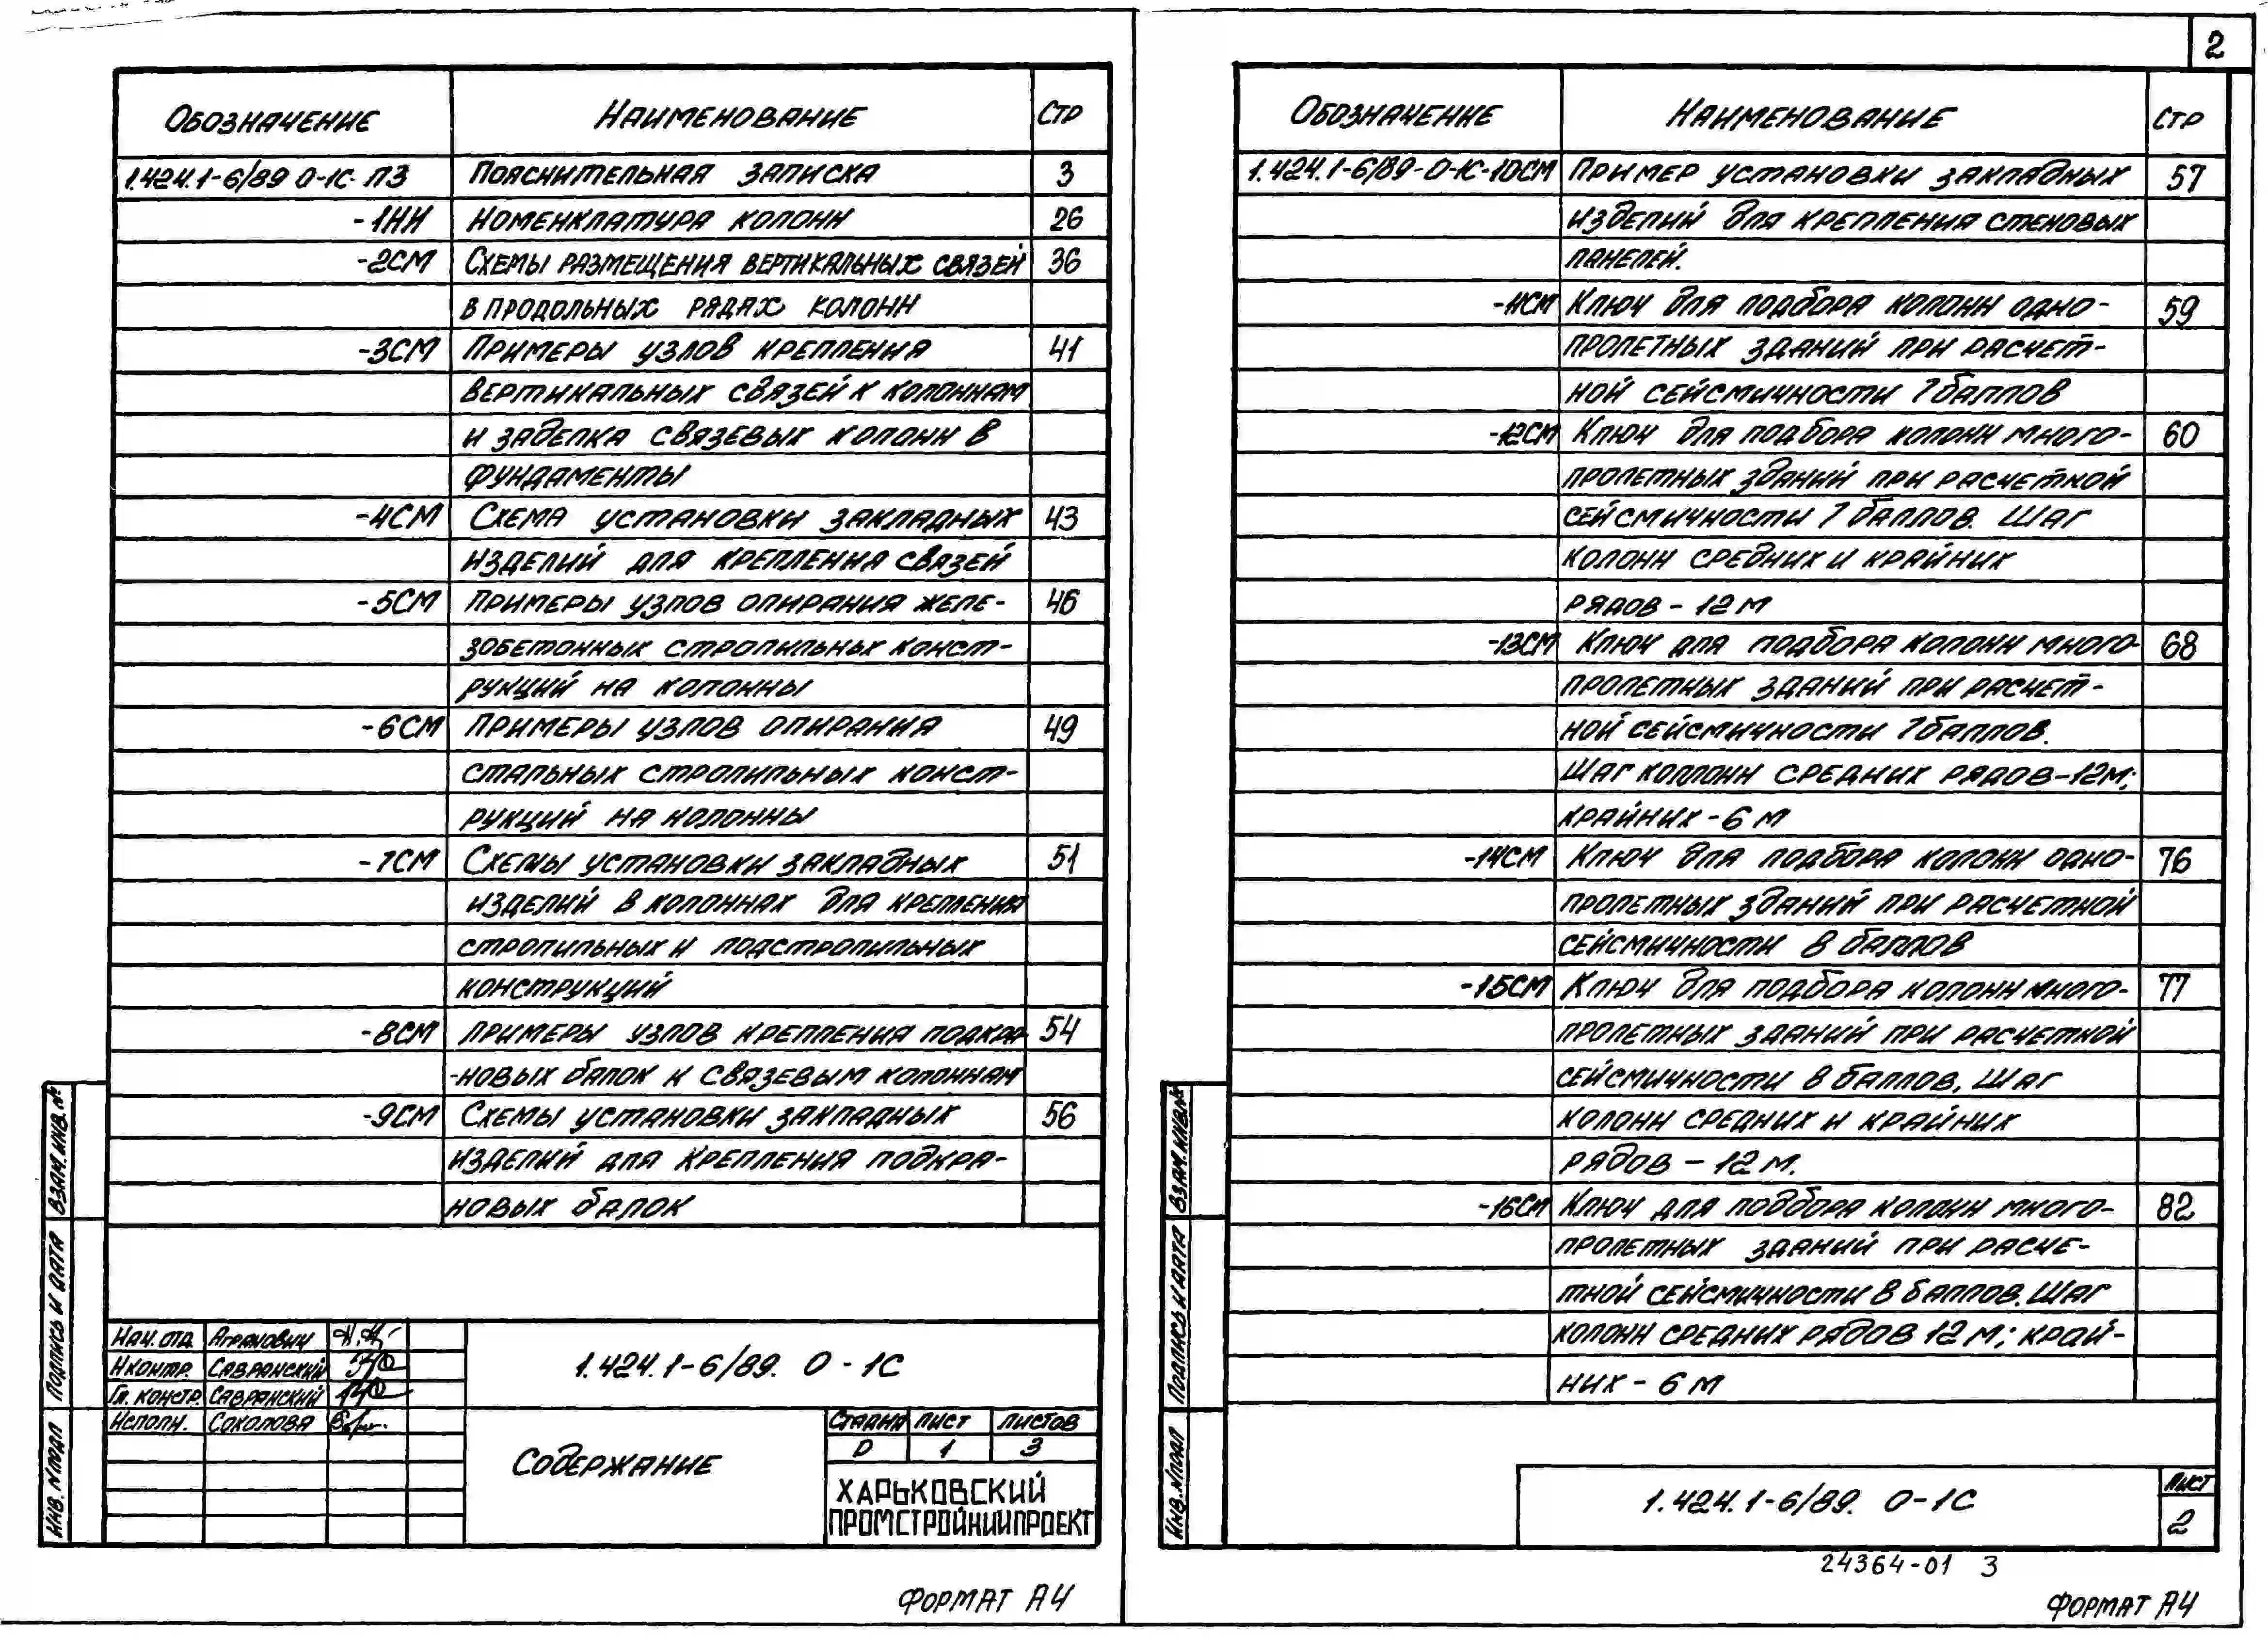 Обозначение Наименование Стр
1.424.1-6/89 0-1С ПЗ Пояснительная записка 3
-1НИ Номенклатура колонн 26
-2СМ Схемы размещения вертикальных связей 36
в продольных рядах колонн
-3СМ Примеры узлов крепления 41
вертикальных связей к колоннам
и заделка связевых колонн в
фундаменты
-4СМ Схема установки закладных 43
изделий для крепления связей
-5СМ Примеры узлов опирания желе- 46
зобетонных стропильных конст-
рукций на колонны
-6СМ Примеры узлов опирания 49
стальных стропильных конст-
рукций на колонны
-7СМ Схемы установки закладных 51
изделий в колоннах для крепления
стропильных и подстропильных
конструкций
-8СМ Примеры узлов крепления подкра- 54
-новых балок к связевым колоннам
-9СМ Схемы установки закладных 56
изделий для крепления подкра-
новых балок
Взам. инв. №
Подпись и дата
Инв. № подл
Нач. отд. Агранович
Н контр. Савранский
Гл. констр. Савранский
Исполн. Соколова
1.424.1-6/89. 0-1С
Содержание
Стадия Лист Листов
Р 1 3
Харьковский
Промстройниипроект
Формат А4
2
Обозначение Наименование Стр
1.424.1-6/89-0-1С-10СМ Пример установки закладных 57
изделий для крепления стеновых
панелей.
-11СМ Ключ для подбора колонн одно- 59
пролетных зданий при расчет-
ной сейсмичности 7 баллов
-12СМ Ключ для подбора колонн много- 60
пролетных зданий при расчетной
сейсмичности 7 баллов. Шаг
колонн средних и крайних
рядов - 12 м
-13СМ Ключ для подбора колонн много- 68
пролетных зданий при расчет-
ной сейсмичности 7 баллов.
Шаг колонн средних рядов-12м;
крайних - 6 м
-14СМ Ключ для подбора колонн одно- 76
пролетных зданий при расчетной
сейсмичности 8 баллов
-15СМ Ключ для подбора колонн много- 77
пролетных зданий при расчетной
сейсмичности 8 баллов. Шаг
колонн средних и крайних
рядов - 12 м.
-16СМ Ключ для подбора колонн много- 82
пролетных зданий при расче-
тной сейсмичности 8 баллов. Шаг
колонн средних рядов 12 м; край-
них - 6 м
Взам. инв. №
Подпись и дата
Инв. № подл
1.424.1-6/89. 0-1С
Лист
2
24364-01 3
Формат А4